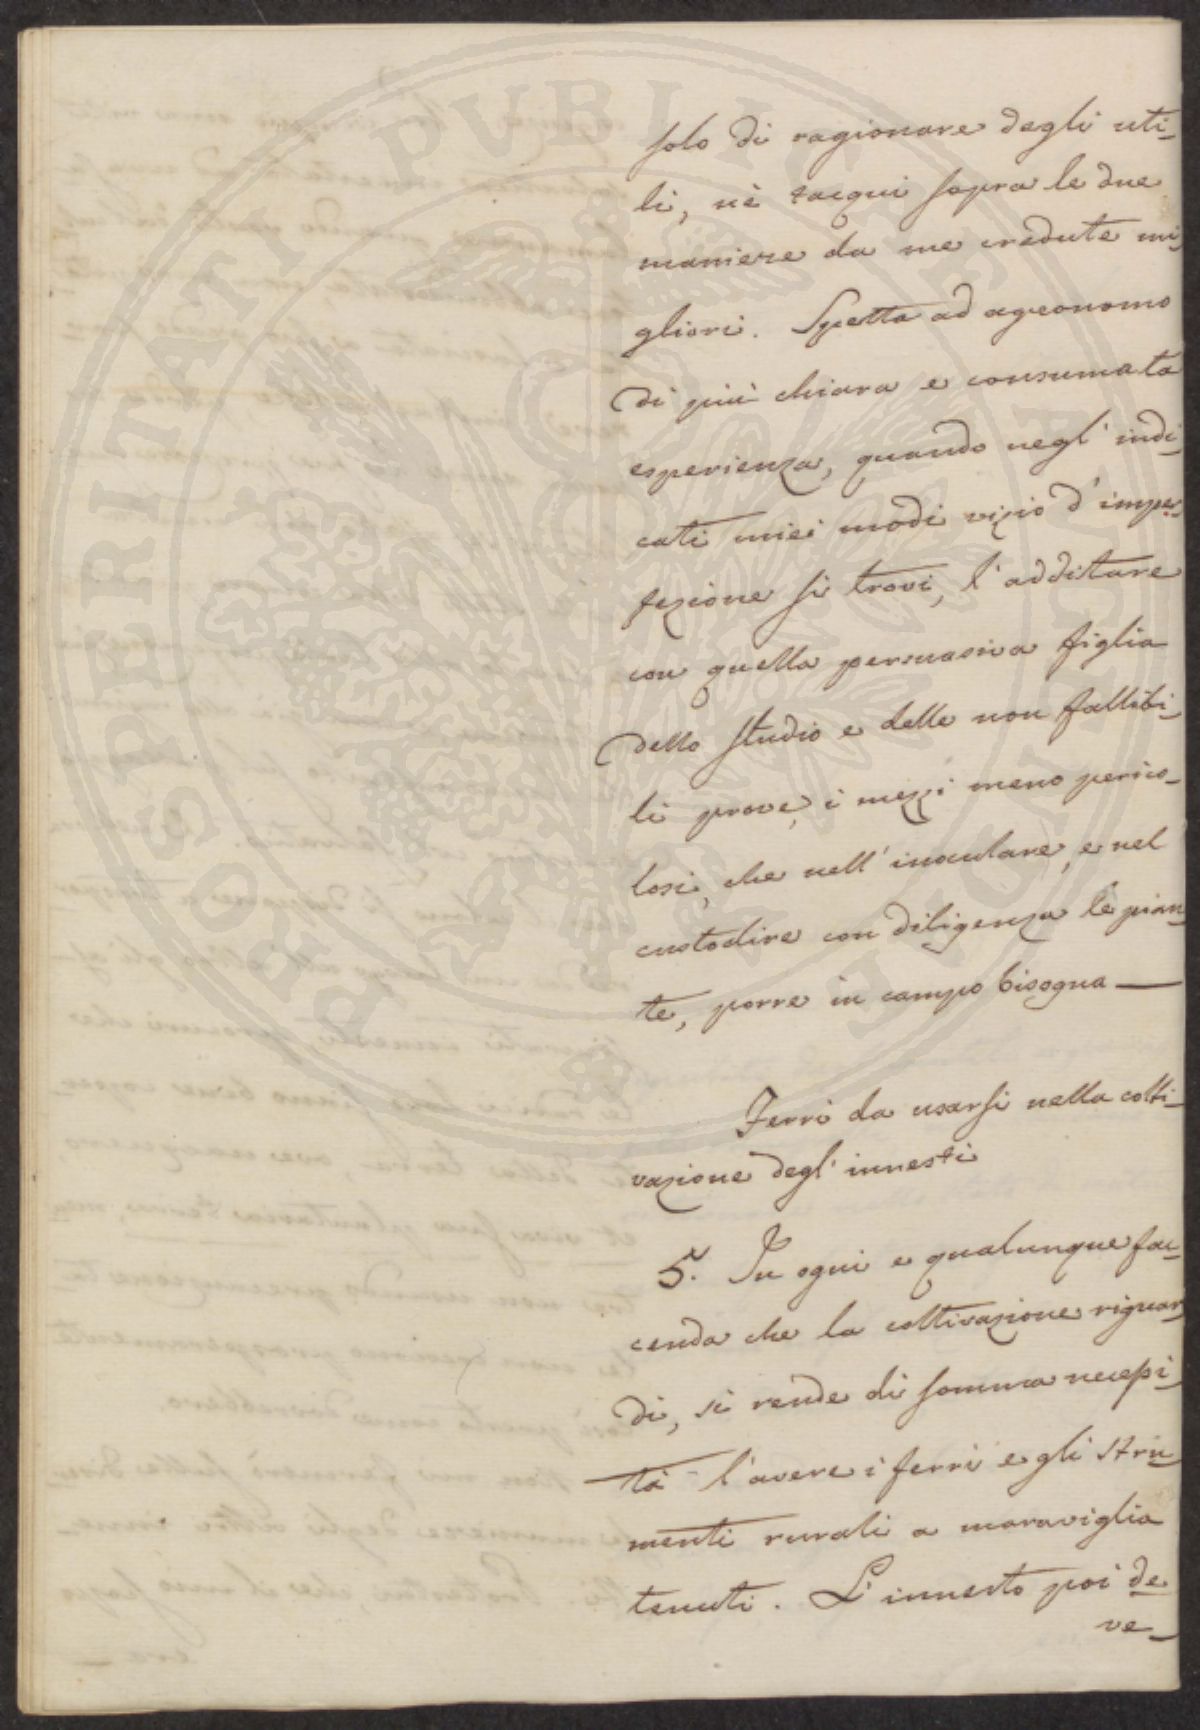 PROSPERITATI PUBLICAE AUGENDAE
solo di ragionare degli uti-
li, nè tacqui sopra le due
maniere da me credute mi-
gliori. Spetta ad agronomo
di più chiara e consumata
esperienza, quando negl' indi-
cati miei modi vizio d' imper-
fezione si trovi, l' additare
con quella persuasiva figlia
dello studio e delle non fallibi-
li prove, i mezzi meno perico-
losi, che nell' inoculare, e nel
custodire con diligenza le pian-
te, porre in campo bisogna —
Ferri da usarsi nella colti-
vazione degl' innesti
5. In ogni e qualunque fac-
cenda che la coltivazione riguar-
di, si rende di somma necessi-
tà l' avere i ferri e gli stru-
menti rurali a maraviglia
tenuti. L' innesto poi de
ve-